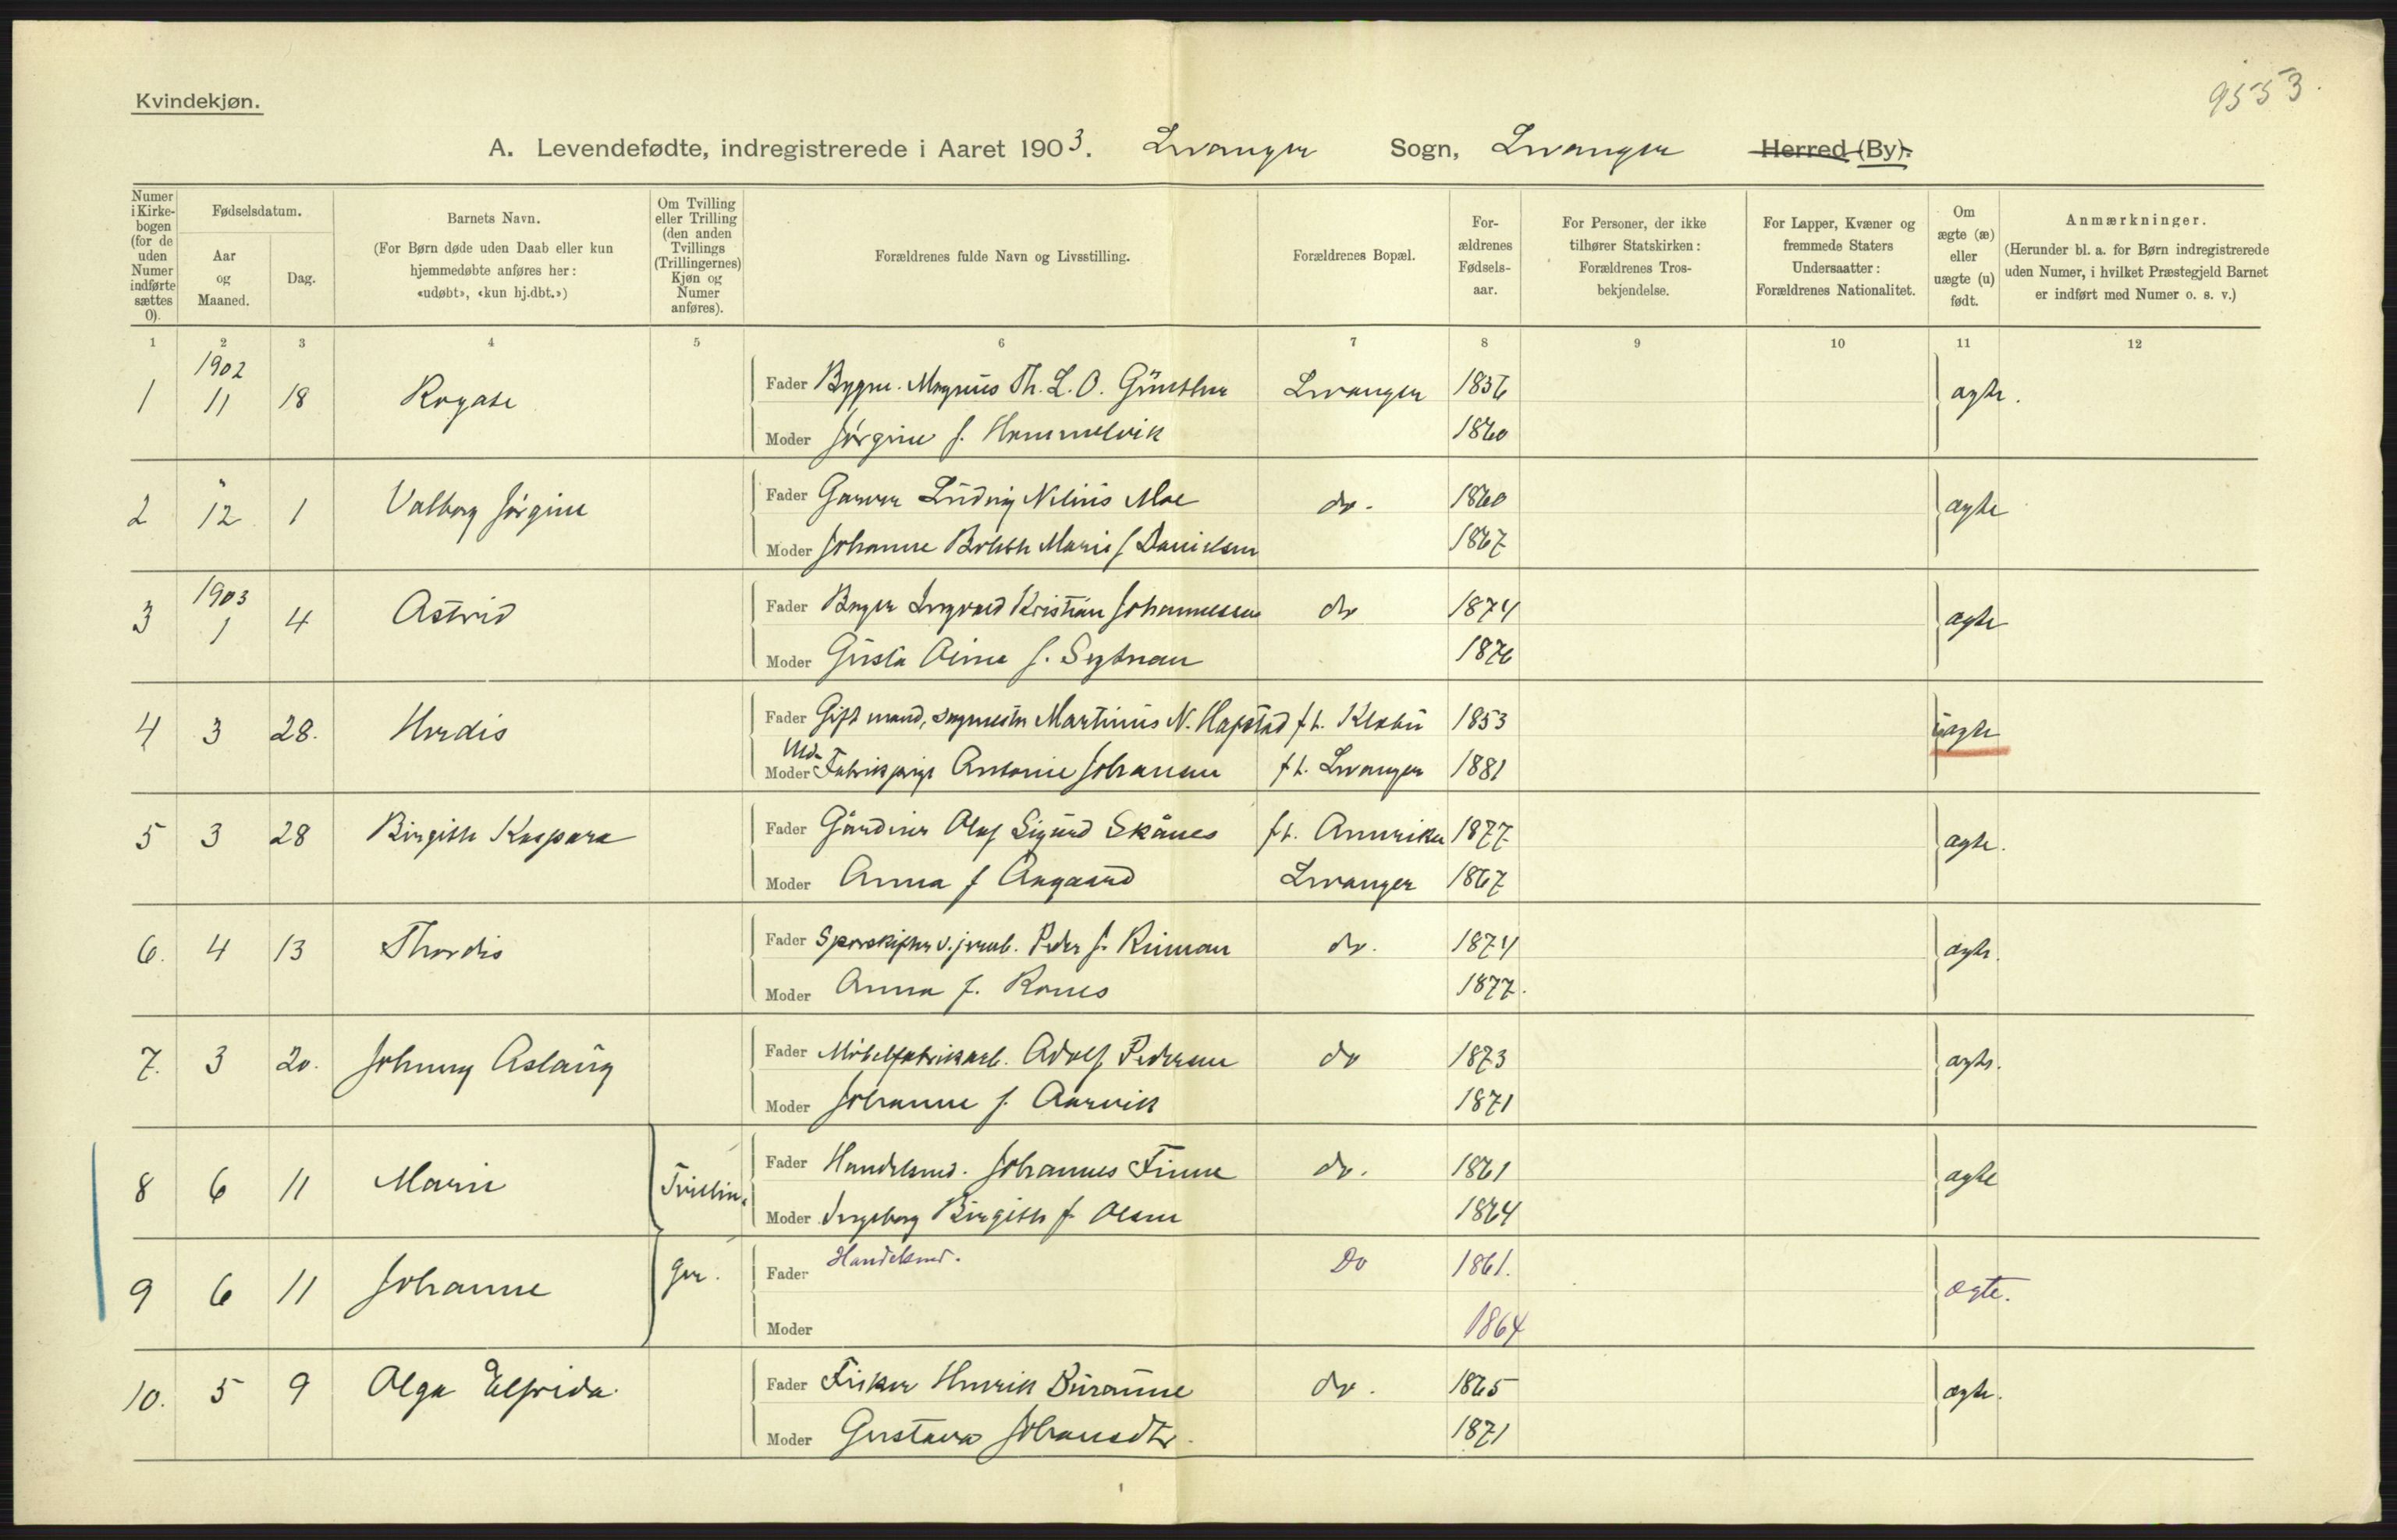 9553.
Kvindekjøn.
A. Levendefødte, indregistrerede i Aaret 1903. Levanger Sogn, Levanger Herred (By).
Numer i Kirkebogen (for de uden Numer indførte sættes 0).
Fødselsdatum.
Aar og Maaned.
Dag.
Barnets Navn.
(For Børn døde uden Daab eller kun hjemmedøbte anføres her: «udøbt», «kun hj.dbt.»)
Om Tvilling eller Trilling (den anden Tvillings (Trillingernes) Kjøn og Numer anføres).
Forældrenes fulde Navn og Livsstilling.
Forældrenes Bopæl.
For-ældrenes Fødsels-aar.
For Personer, der ikke tilhører Statskirken: Forældrenes Tros-bekjendelse.
For Lapper, Kvæner og fremmede Staters Undersaatter: Forældrenes Nationalitet.
Om ægte (æ) eller uægte (u) født.
Anmærkninger.
(Herunder bl. a. for Børn indregistrerede uden Numer, i hvilket Præstegjeld Barnet er indført med Numer o. s. v.)
1 2 3 4 5 6 7 8 9 10 11 12
1 1902 11 18 Rogate Fader Bygm. Magnus Th. L. O. Günther Levanger 1836 ægte.
Moder Jørgine f. Hammelvik 1860
2 " 12 1 Valborg Jørgine Fader Garver Ludvig Nilius Moe do. 1860 ægte
Moder Johanne Bolette Marie f Danielsen 1867
3 1903 1 4 Astrid Fader Bager Ingvard Kristian Johannessen do 1874 ægte
Moder Gusta Aime f. Sytnau 1876
4 3 28. Herdis Fader Gift mand, Martinus N. Hapstad f.t. Klæbu 1853 uægte
Moder Fabrikpige Antonie Johansen f.t. Levanger 1881
5 3 28 Birgitte Kaspara Fader Gårdmr Olaf Sigurd Skånes f.t. Amerika 1877 ægte.
Moder Anna f Aagaard Levanger 1867
6. 4 13 Thordis Fader Sporskifter v. jernb. Peder J. Riiman do. 1874 ægte.
Moder Anna f. Rones 1877.
7. 3 20. Johnny Aslaug Fader Møbelfabrikarb. Adolf Pedersen do 1873 ægte.
Moder Johanne f. Aarvik 1871
8 6 11 Marie Tvillin- Fader Handelsmd. Johannes Finne do. 1861 ægte
Moder Ingeborg Birgitte f. Olsen 1864
9 6 11 Johanne ger. Fader Handelsmd. Do 1861. ægte.
Moder 1864
10. 5 9 Olga Elfrida Fader Fisker Henrik Buraune do. 1865 ægte.
Moder Gustava Johansdtr. 1871